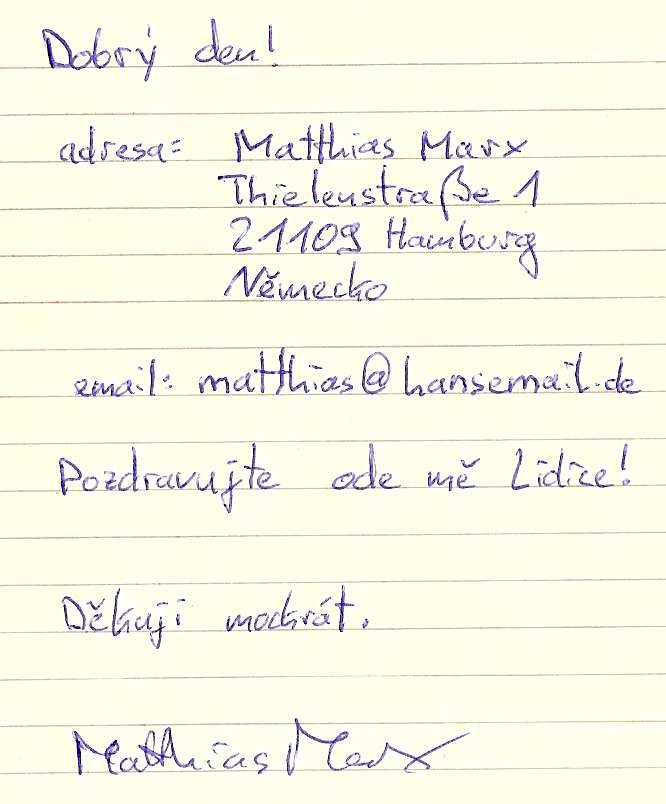 Dobrý den!
adresa: Matthias Marx
Thielenstraße 1
21109 Hamburg
Německo
email: matthias@hansemail.de
Pozdravujte ode mě Lidice!
Děkuji mockrát.
Matthias Marx